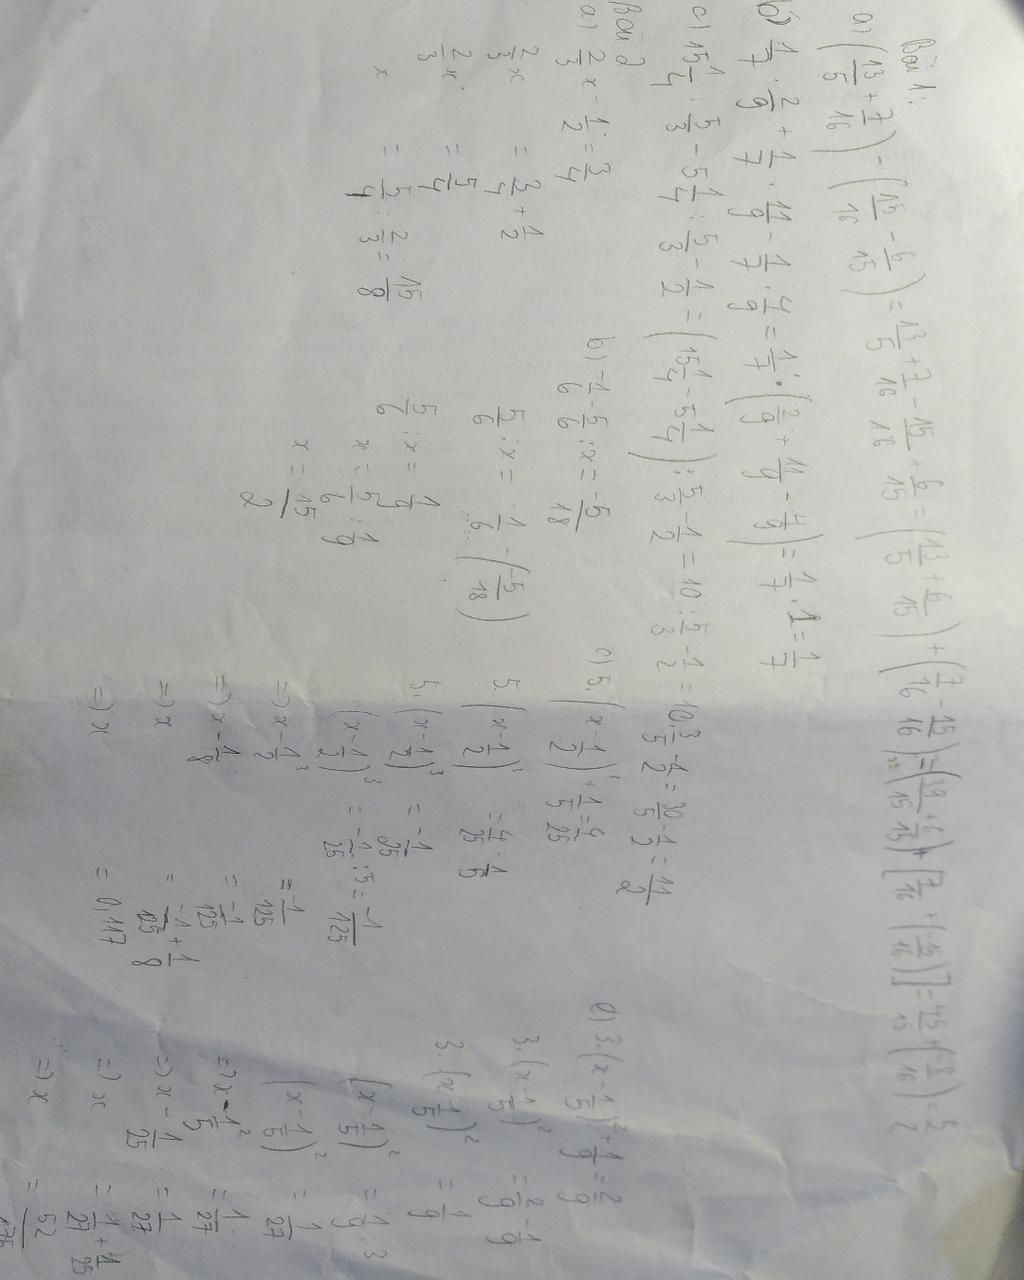 Bài 1:
a) (13/5 + 7/16) - (15/16 - 6/15) = 13/5 + 7/16 - 15/16 + 6/15 = (13/5 + 6/15) + (7/16 - 15/16) = (39/15 + 6/15) + [7/16 + (-15/16)] = 45/15 + (-8/16) = 5/2
b) 1/7 . 2/9 + 1/7 . 11/9 - 1/7 . 4/9 = 1/7 . (2/9 + 11/9 - 4/9) = 1/7 . 1 = 1/7
c) 15 1/4 : 5/3 - 5 1/4 : 5/3 - 1/2 = (15 1/4 - 5 1/4) : 5/3 - 1/2 = 10 : 5/3 - 1/2 = 10 . 3/5 - 1/2 = 30/5 - 1/2 = 11/2
Bài 2
a) 2/3 x - 1/2 = 3/4
2/3 x = 3/4 + 1/2
2/3 x = 5/4
x = 5/4 : 2/3 = 15/8
b) -1/6 - 5/6 : x = -5/18
5/6 : x = -1/6 - (-5/18)
5/6 : x = 1/9
x = 5/6 : 1/9
x = 15/2
c) 5. (x - 1/2)³ + 1/5 = 4/25
5. (x - 1/2)³ = 4/25 - 1/5
5. (x - 1/2)³ = -1/25
(x - 1/2)³ = -1/25 : 5 = -1/125
=> x - 1/2³ = -1/125
=> x - 1/8 = -1/125
=> x = -1/125 + 1/8
=> x = 0,117
3. (x - 1/5)² + 1/9 = 2/9
3. (x - 1/5)² = 2/9 - 1/9
3. (x - 1/5)² = 1/9
(x - 1/5)² = 1/9 : 3
(x - 1/5)² = 1/27
=> x - 1/5² = 1/27
=> x - 1/25 = 1/27
=> x = 1/27 + 1/25
=> x = 52/675